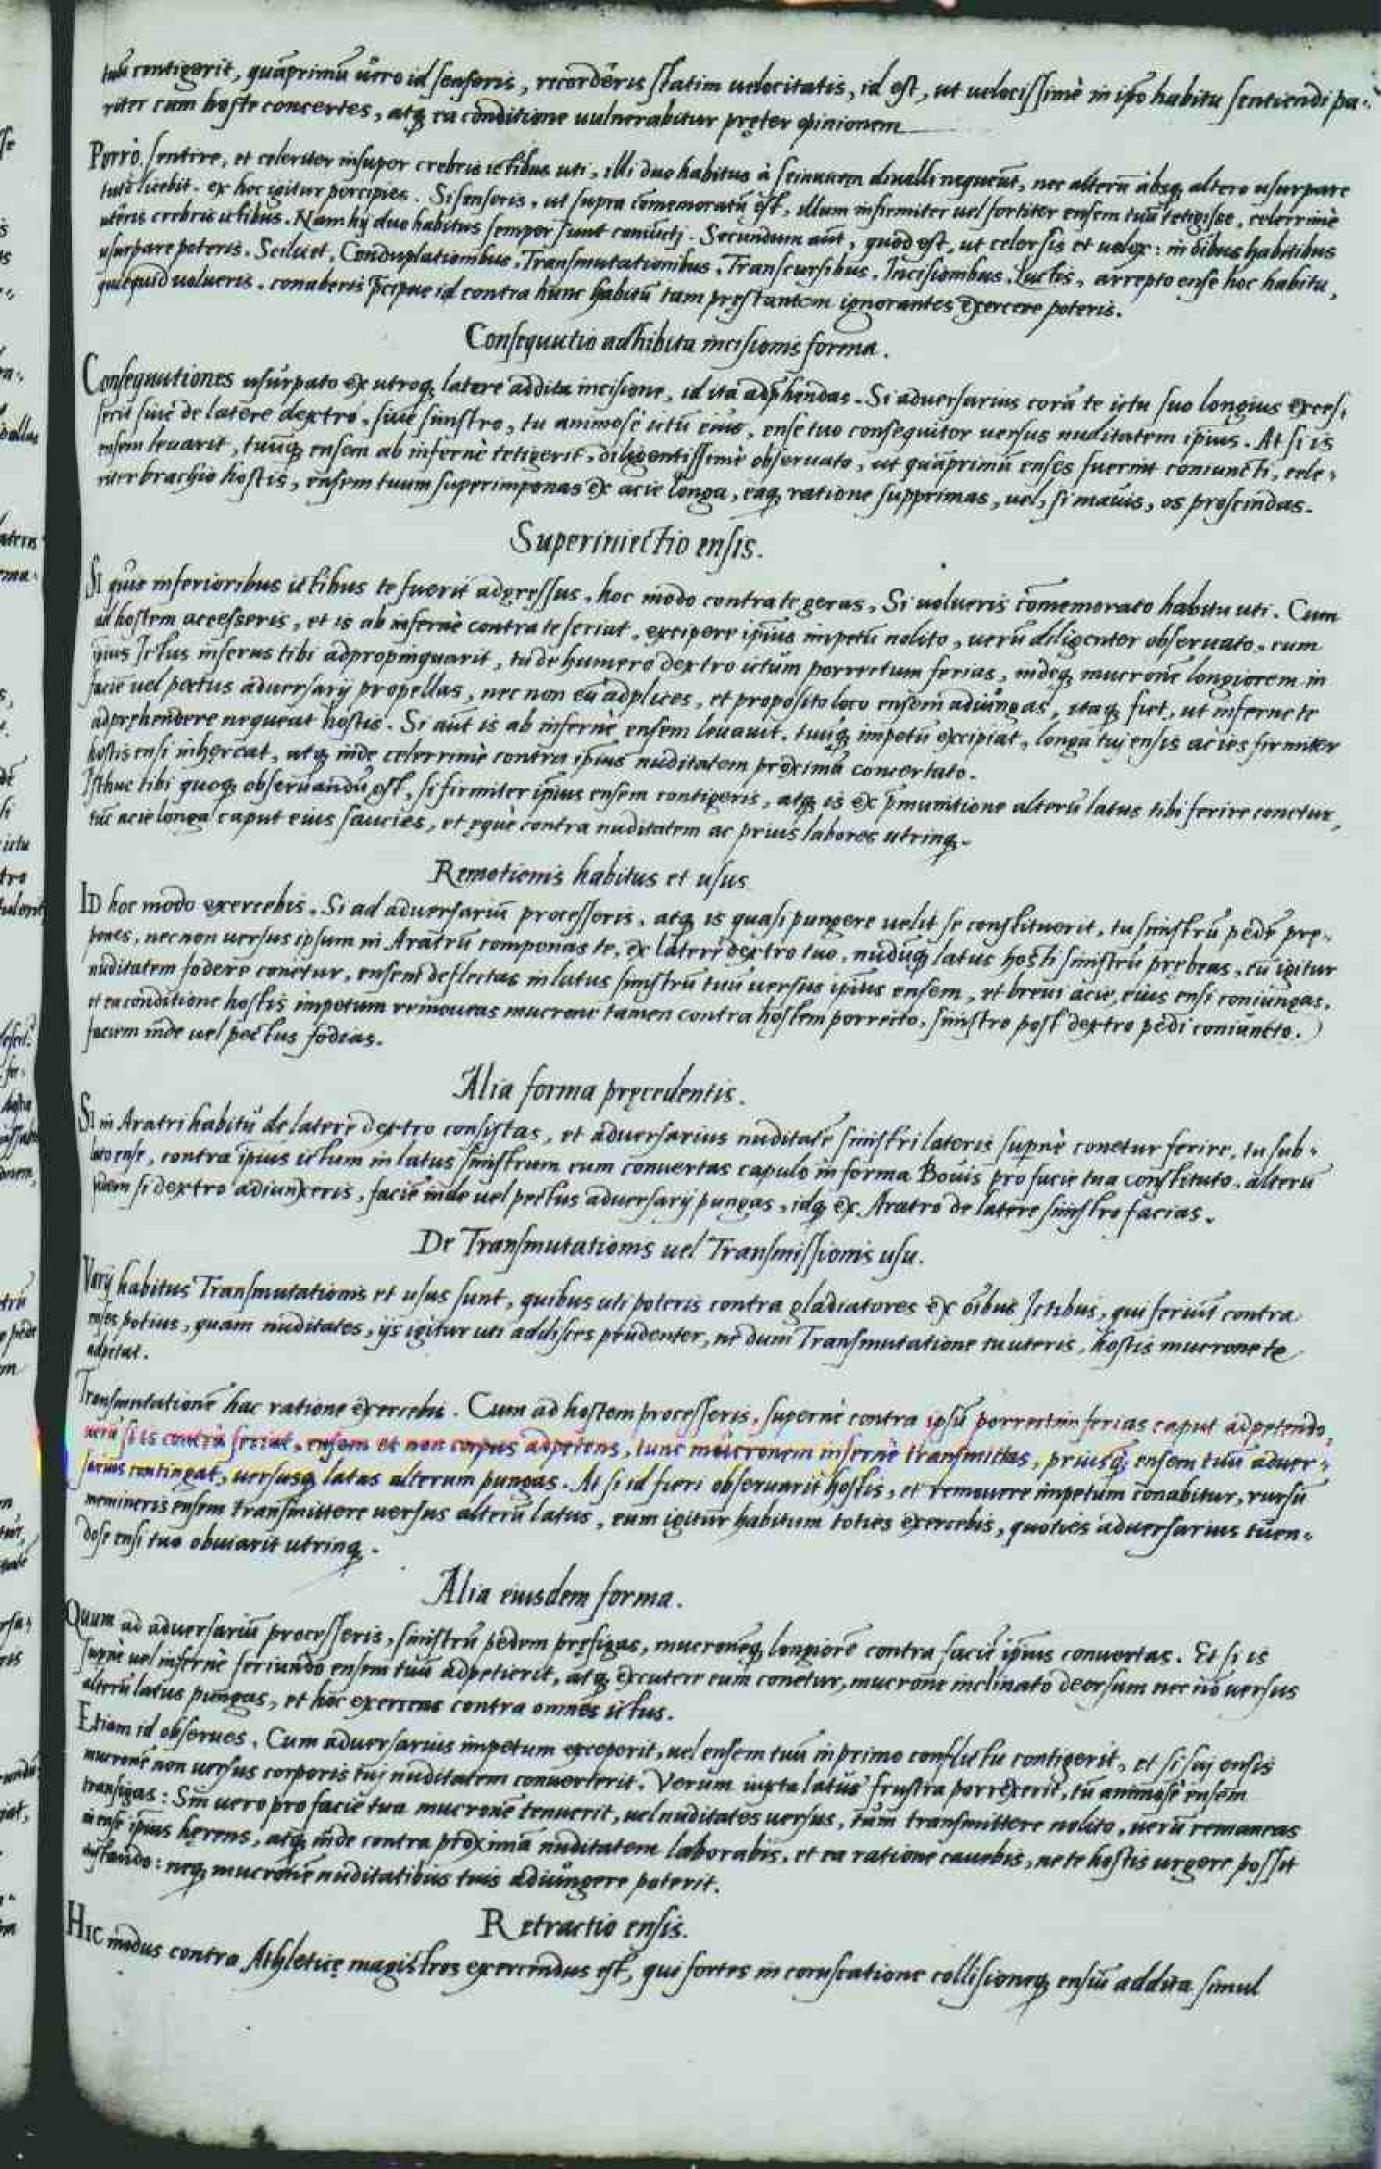 tuū contigerit, quāprimū uero id senseris, recorderis statim uelocitatis, id est, ut uelocissimè in ipso habitu sentiendi pa-
riter cum hoste concertes, atq; ea conditione uulnerabitur pręter opinionem
Porrò sentire, et celeriter insuper crebris ictibus uti, illi duo habitus à seinuicem diuelli nequeūt, nec alterū absq; altero usurpare
tutò licebit. ex hoc igitur percipies. Si senseris, ut supra cōmemoratū est, illum infirmiter uel fortiter ensem tuū tetigisse, celerrimè
uteris crebris ictibus. Nam hÿ duo habitus semper sunt coniuncti. Secundum aūt, quod est, ut celer sis et uelox: in oībus habitibus
usurpare poteris. Scilicet, Conduplationibus, Transmutationibus, Transcursibus, Incisionibus, Luctis, arrepto ense hoc habitu,
quicquid uolueris. conaberis p̄cipue id contra hunc habitū tam pręstantem ignorantes exercere poteris.
Consequutio adhibita incisionis forma.
Consequutiones usurpato ex utroq; latere addita incisione, id ita adp̄hendas. Si aduersarius corā te ictu suo longius exces,
serit siue de latere dextro, siue sinistro, tu animosè ictū eius, ense tuo consequitor uersus nuditatem ipsius. At si is
ensem leuarit, tuuq; ensem ab infernè tetigerit, diligentissimè obseruato, ut quāprimū enses fuerint coniuncti, cele-
riter brachio hostis, ensem tuum superimponas ex acie longa, eaq; ratione supprimas, uel, si mauis, os proscindas.
Superiniectio ensis.
Si quis inferioribus ictibus te fuerit adgressus, hoc modo contra te geras, Si uolueris cōmemorato habitu uti. Cum
ad hostem accesseris, et is ab infernè contra te feriat, excipere ipsius impetū nolito, uerū diligenter obseruato, cum
ipsius Ictus inferus tibi adpropinquarit, tu de humero dextro ictum porrectum ferias, indeq; mucronē longiorem in
faciē uel pectus aduersarÿ propellas, nec non eū adplices, et proposito loco ensem adiungas, itaq; fiet, ut inferne te
adpręhendere nequeat hostis. Si aūt is ab infernè ensem leuauit, tuūq; impetū excipiat, longa tui ensis acies firmiter
hostis ensi inhęreat, atq; inde celerrimè contra ipsius nuditatem proximā concertato.
Isthuc tibi quoq; obseruandū est, si firmiter ipsius ensem contigeris, atq; is ex p̄munitione alterū latus tibi ferire conetur,
tūc acie longa caput eius saucies, et ęquè contra nuditatem ac prius labores utrinq;.
Remotionis habitus et usus
ID hoc modo exercebis. Si ad aduersariū processeris, atq; is quasi pungere uelit se constituerit, tu sinistrū pedē pre-
pones, nec non uersus ipsum in Aratrū componas te, ex latere dextro tuo, nudūq; latus hosti sinistrū prębeas, cū igitur
nuditatem fodere conetur, ensem deflectas in latus sinistrū tuū uersus ipsius ensem, et breui acie, eius ensi coniungas,
et ea conditione hostis impetum remoueas mucrone tamen contra hostem porrecto, sinistro post dextro pedi coniuncto.
faciem inde uel pectus fodias.
Alia forma pręcedentis.
Si in Aratri habitū de latere dextro consistas, et aduersarius nuditatē sinistri lateris supernè conetur ferire, tu sub-
lato ense, contra ipsius ictum in latus sinistrum eum conuertas capulo in forma Bouis pro facie tua constituto. alterū
pedem si dextro adiunxeris, faciē inde uel pectus aduersarÿ pungas, idq; ex Aratro de latere sinistro facias.
De Transmutationis uel Transmissionis usu.
Varÿ habitus Transmutationis et usus sunt, quibus uti poteris contra gladiatores ex oībus Ictibus, qui feriūt contra
enses potius, quam nuditates, ÿs igitur uti addisces prudenter, ne dum Transmutatione tu uteris, hostis mucrone te
adpetat.
Transmutationē hac ratione exercebis. Cum ad hostem processeris, supernè contra ipsū porrectim ferias caput adpetendo,
uerū si is contrà feriat, ensem et non corpus adpetens, tunc mucronem infernè transmittas, priusq; ensem tuū aduer-
sarius contingat, uersusq; latus alterum pungas. At si id fieri obseruarit hostis, et remouere impetum conabitur, rursū
memineris ensem transmittere uersus alterū latus, eum igitur habitum toties exercebis, quoties aduersarius tuen-
do se ensi tuo obuiarit utrinq;.
Alia eiusdem forma.
Quum ad aduersariū processeris, sinistrū pedem pręfigas, mucronēq; longiorē contra faciē ipsius conuertas. Et si is
supernè uel infernè feriundo ensem tuū adpetierit, atq; excutere eum conetur, mucrone inclinato deorsum nec nō uersus
alterū latus pungas, et hoc exerceas contra omnes ictus.
Etiam id obserues, Cum aduersarius impetum exceperit, uel ensem tuū in primo conflictu contigerit, et si sui ensis
mucronē non uersus corporis tui nuditatem conuerterit. Verum iuxta latus frustra porrexerit, tu animosè ensem
transigas: Sin uero pro facie tua mucronē tenuerit, uel nuditates uersus, tum transmittere nolito, uerū remaneas
in ense ipsius hęrens, atq; inde contra proximā nuditatem laborabis, et ea ratione cauebis, ne te hostis urgere possit
instando: neq; mucronē nuditatibus tuis adiungere poterit.
Retractio ensis.
HIC modus contra Athleticę magistros exercendus est, qui fortes in coruscatione collisioneq; ensiū addita simul